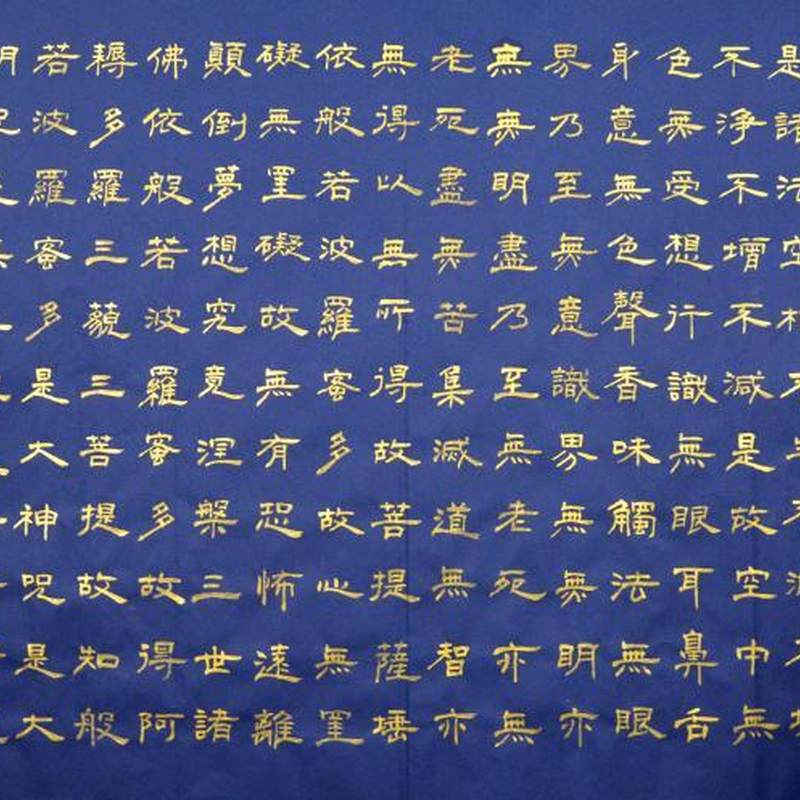 是諸法空相不生不滅不垢
不淨不增不減是故空中無
色無受想行識無眼耳鼻舌
身意無色聲香味觸法無眼
界乃至無意識界無無明亦
無無明盡乃至無老死亦無
老死盡無苦集滅道無智亦
無得以無所得故菩提薩埵
依般若波羅蜜多故心無罣
礙無罣礙故無有恐怖遠離
顛倒夢想究竟涅槃三世諸
佛依般若波羅蜜多故得阿
耨多羅三藐三菩提故知般
若波羅蜜多是大神呪是大